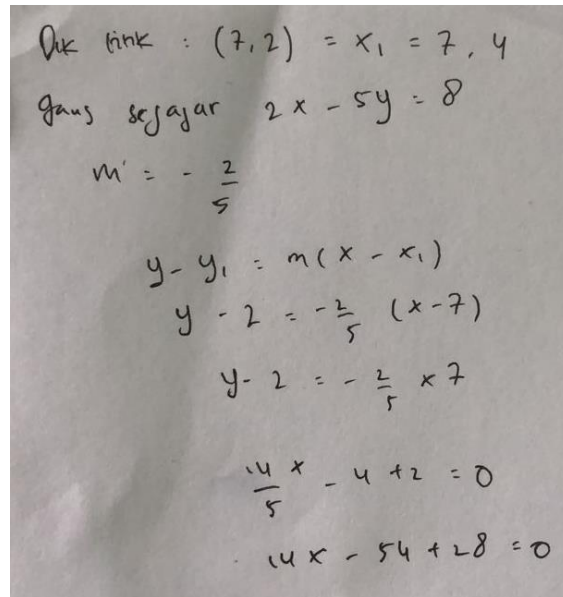 Dik titik : (7,2) = x₁ = 7, 4
garis sejajar 2x - 5y = 8
m' = - 2/5
y - y₁ = m(x - x₁)
y - 2 = -2/5 (x-7)
y - 2 = - 2/5 x 7
14x/5 - 4 + 2 = 0
14x - 54 + 28 = 0